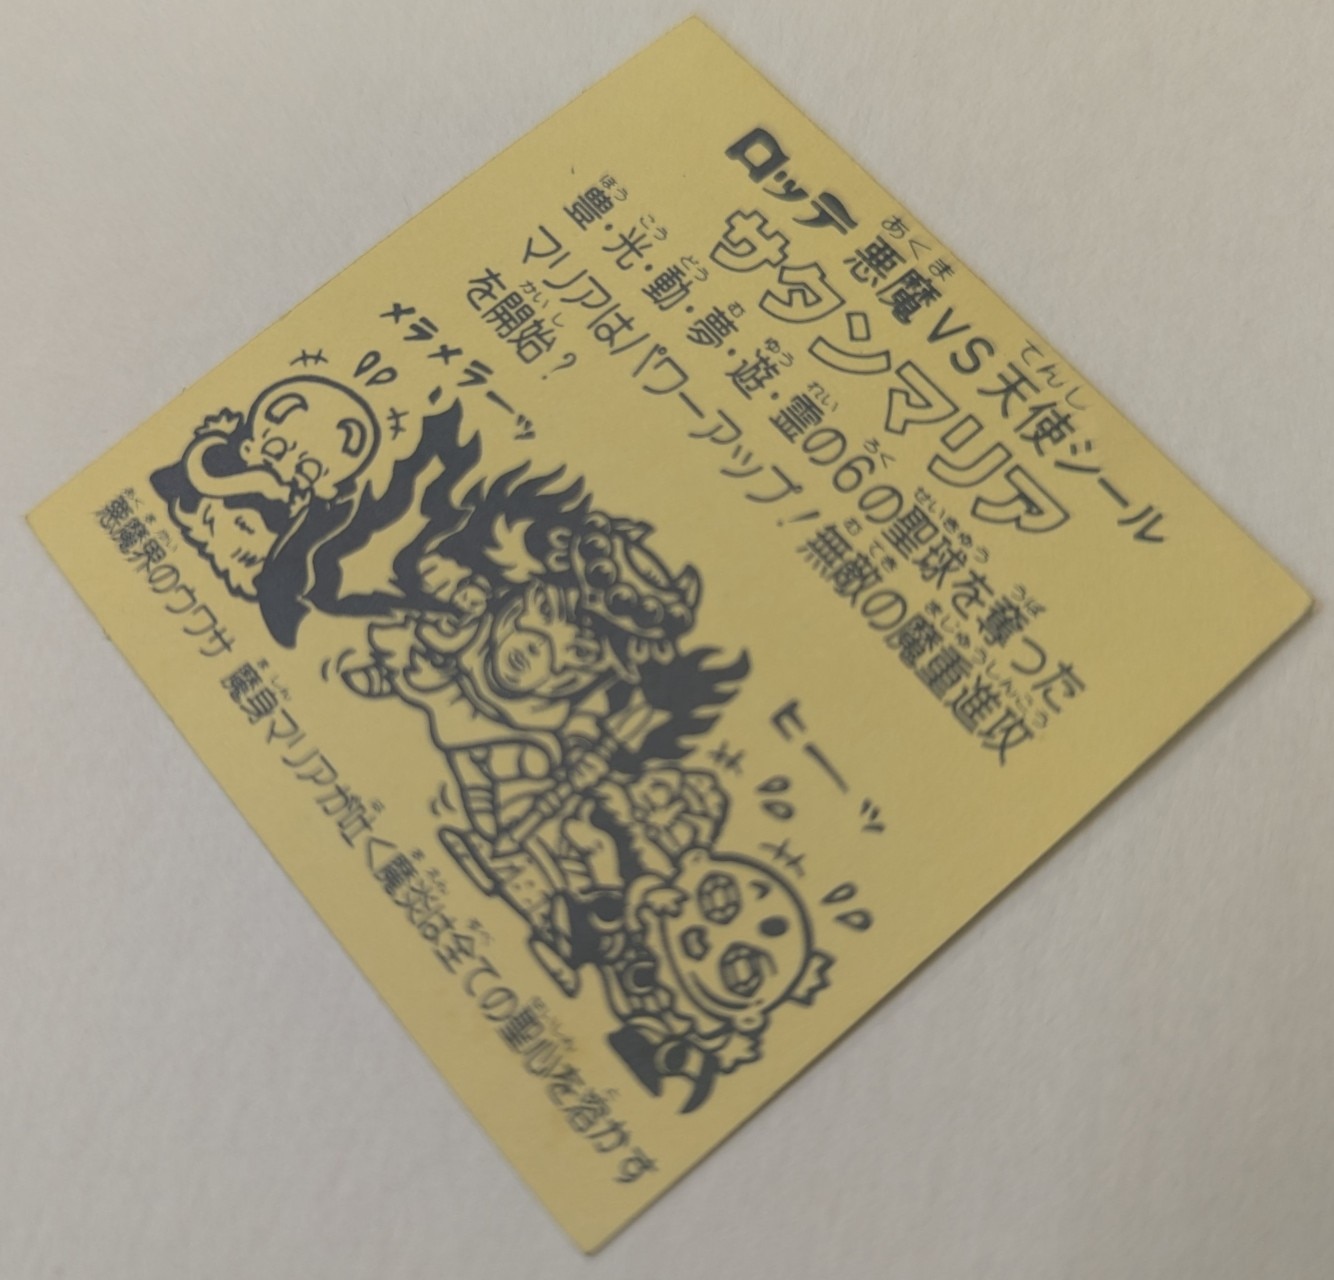 ロッテ 悪魔VS天使シール
サタンマリア
豊・光・動・夢・遊・霊の6の聖球を奪った
マリアはパワーアップ!無敵の魔重進攻
を開始?
メラメラーッ
ヒーッ
悪魔界のウワサ 魔身マリアが吐く魔炎は全ての聖心を溶かす